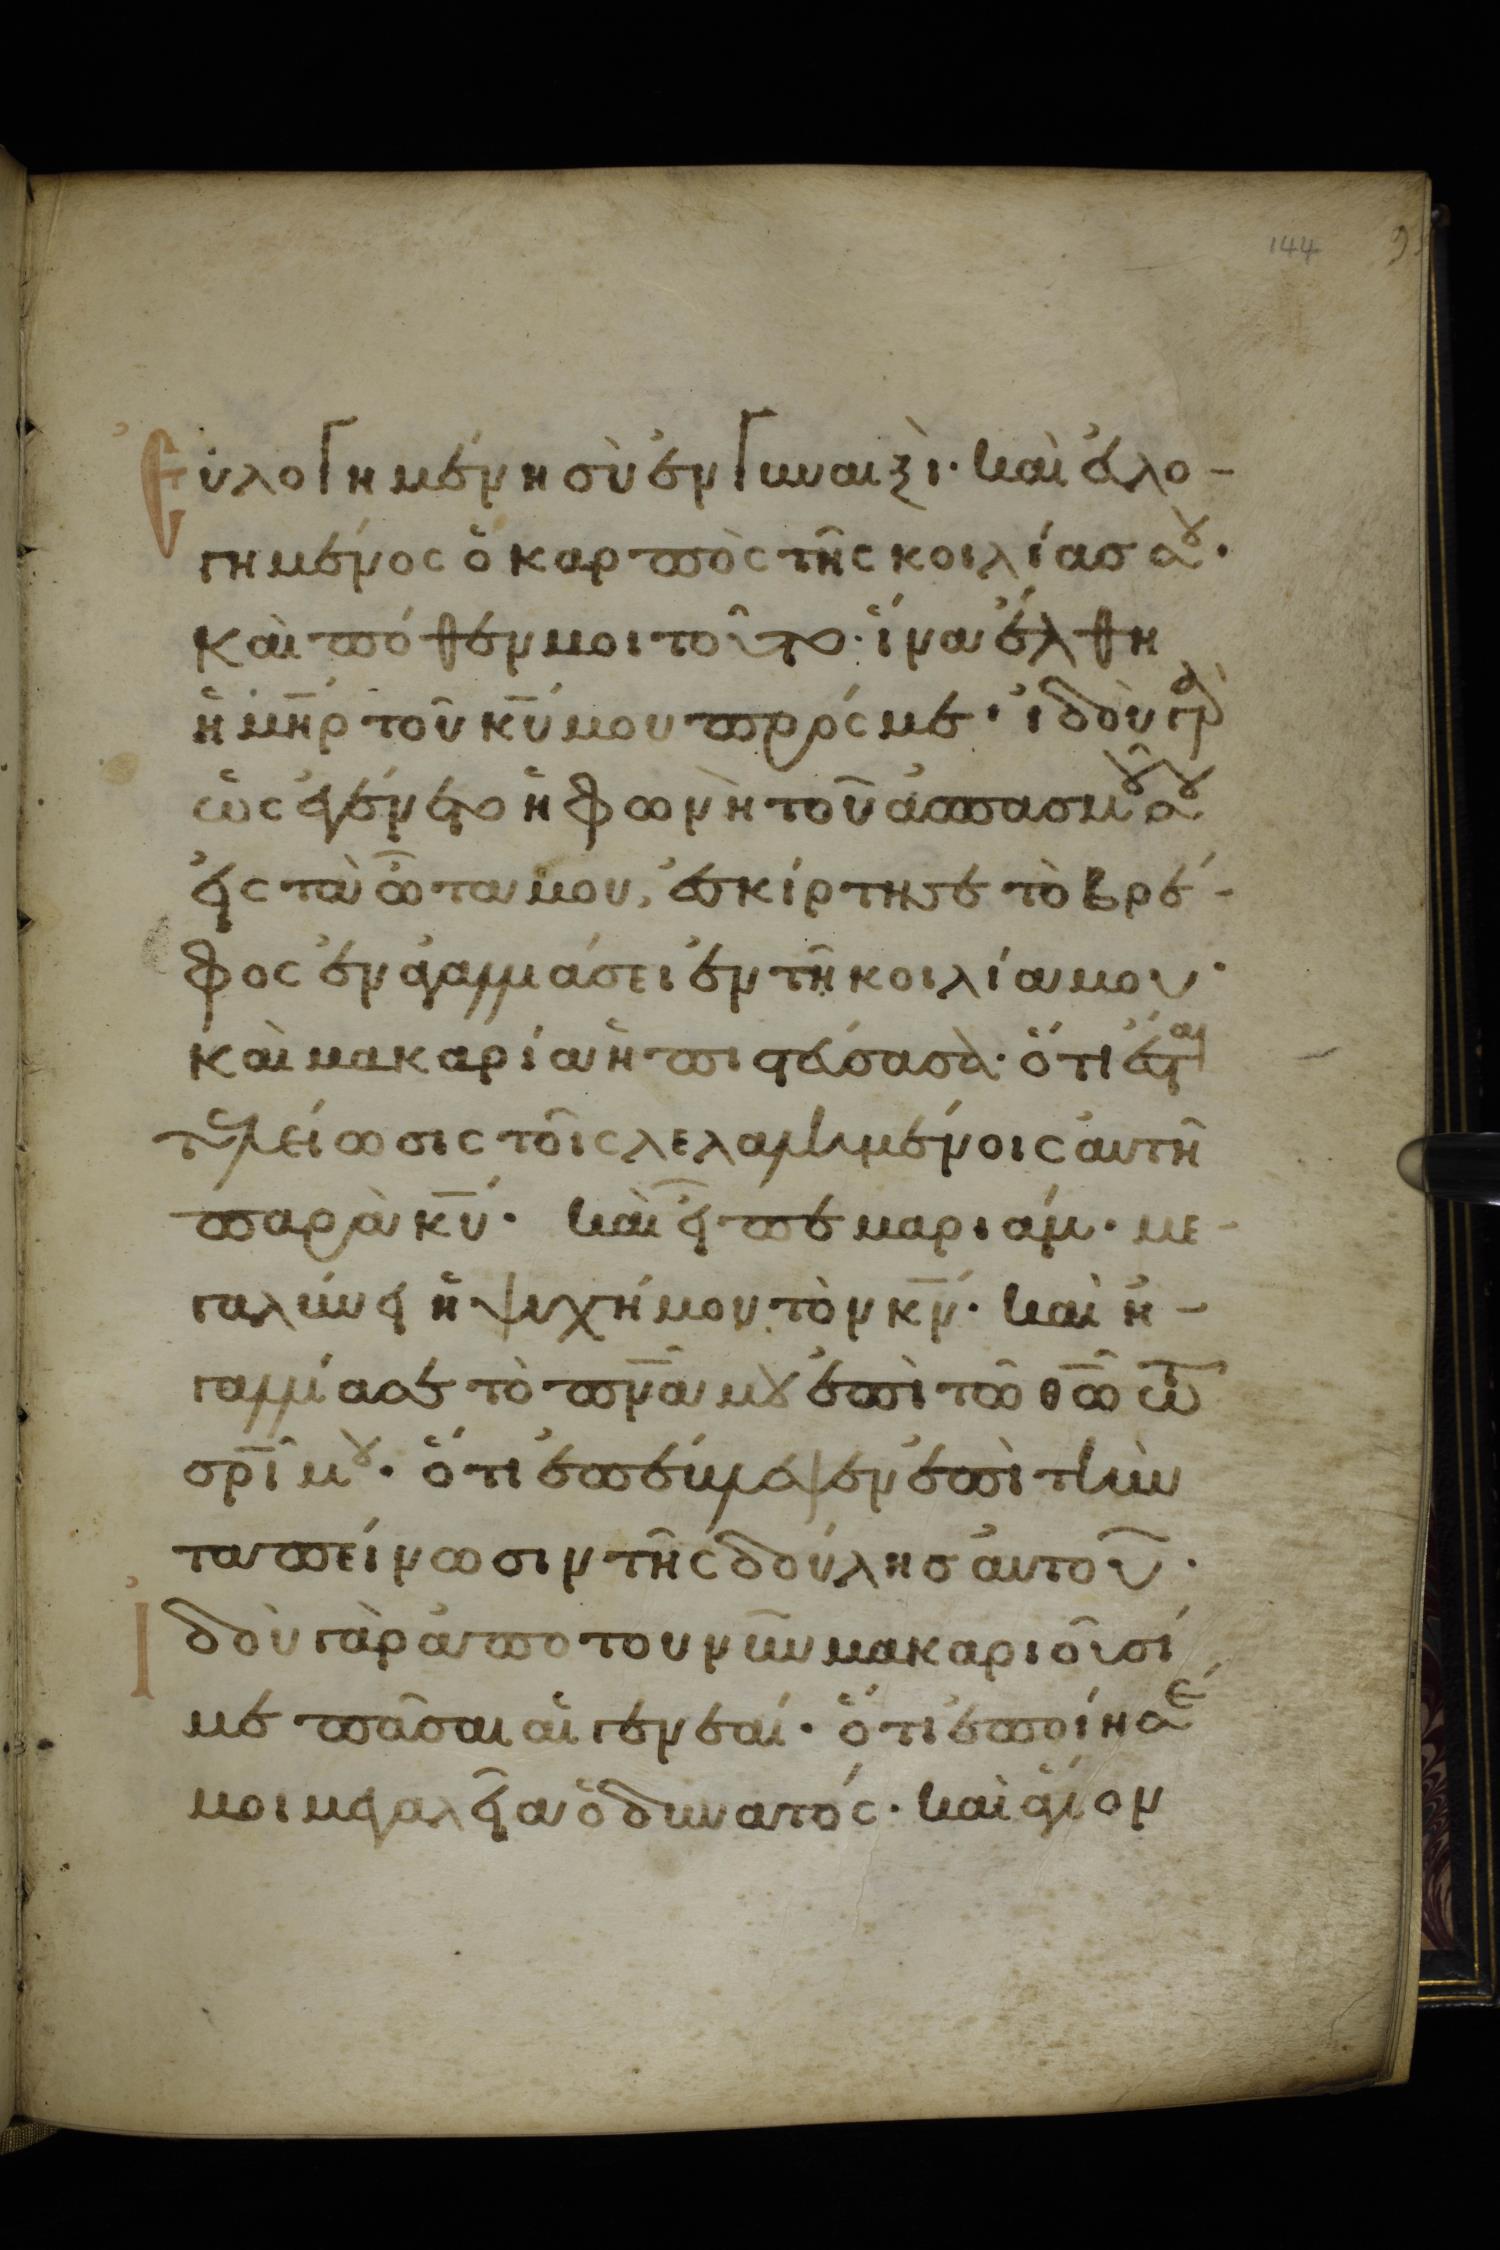 144
Εὐλογημένη σὺ ἐν γυναιξὶ· καὶ εὐλο-
γημένος ὁ καρπὸς τῆς κοιλίας σου·
καὶ πόθεν μοι τοῦτο· ἵνα ἔλθη
ἡ μη̅ρ τοῦ κυ̅ μου πρός με· ἰδοὺ γὰρ
ὡς ἐγένετο ἡ φωνὴ τοῦ ἀσπασμοῦ σου
εἰς τὰ ὦτα μου, ἐσκίρτησε τὸ βρέ-
φος ἐν ἀγαλλιάσει ἐν τῆ κοιλία μου·
καὶ μακαρία ἡ πιστεύσασα· ὅτι ἔσται
τελείωσις τοῖς λελαλημένοις αὐτῆ
παρὰ κυ̅· καὶ εἶπε μαριάμ· με-
γαλύνει ἡ ψυχή μου τὸν κν̅· καὶ ἠ-
γαλλίασε τὸ πνα̅ μου ἐπὶ τῶ θω̅ τῶ
σρι̅ μου· ὅτι ἐπέβλεψεν ἐπὶ τὴν
ταπείνωσιν τῆς δούλης αὐτοῦ·
Ἰδοὺ γὰρ ἀπο του νῦν μακαριοῦσί
με πᾶσαι αἱ γενεαί· ὅτι ἐποίησέ
μοι μεγαλεῖα ὁ δυνατός· καὶ ἅγιον